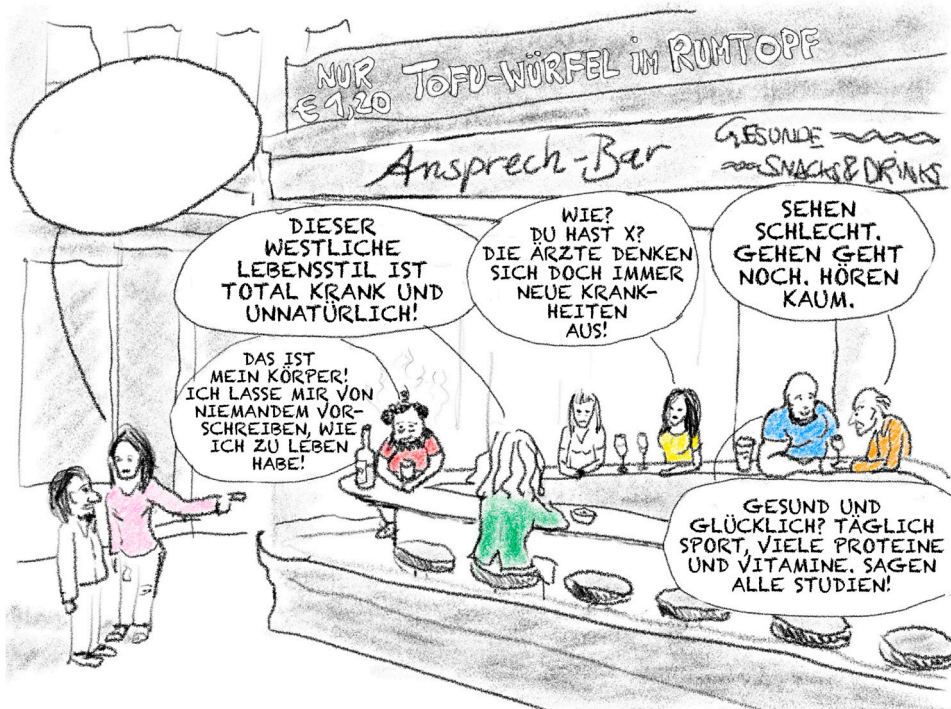 NUR
€ 1,20
TOFU-WÜRFEL IM RUMTOPF
Ansprech-Bar
GESUNDE
SNACKS & DRINKS
DIESER
WESTLICHE
LEBENSSTIL IST
TOTAL KRANK UND
UNNATÜRLICH!
WIE?
DU HAST X?
DIE ÄRZTE DENKEN
SICH DOCH IMMER
NEUE KRANK-
HEITEN
AUS!
SEHEN
SCHLECHT.
GEHEN GEHT
NOCH. HÖREN
KAUM.
DAS IST
MEIN KÖRPER!
ICH LASSE MIR VON
NIEMANDEM VOR-
SCHREIBEN, WIE
ICH ZU LEBEN
HABE!
GESUND UND
GLÜCKLICH? TÄGLICH
SPORT, VIELE PROTEINE
UND VITAMINE. SAGEN
ALLE STUDIEN!